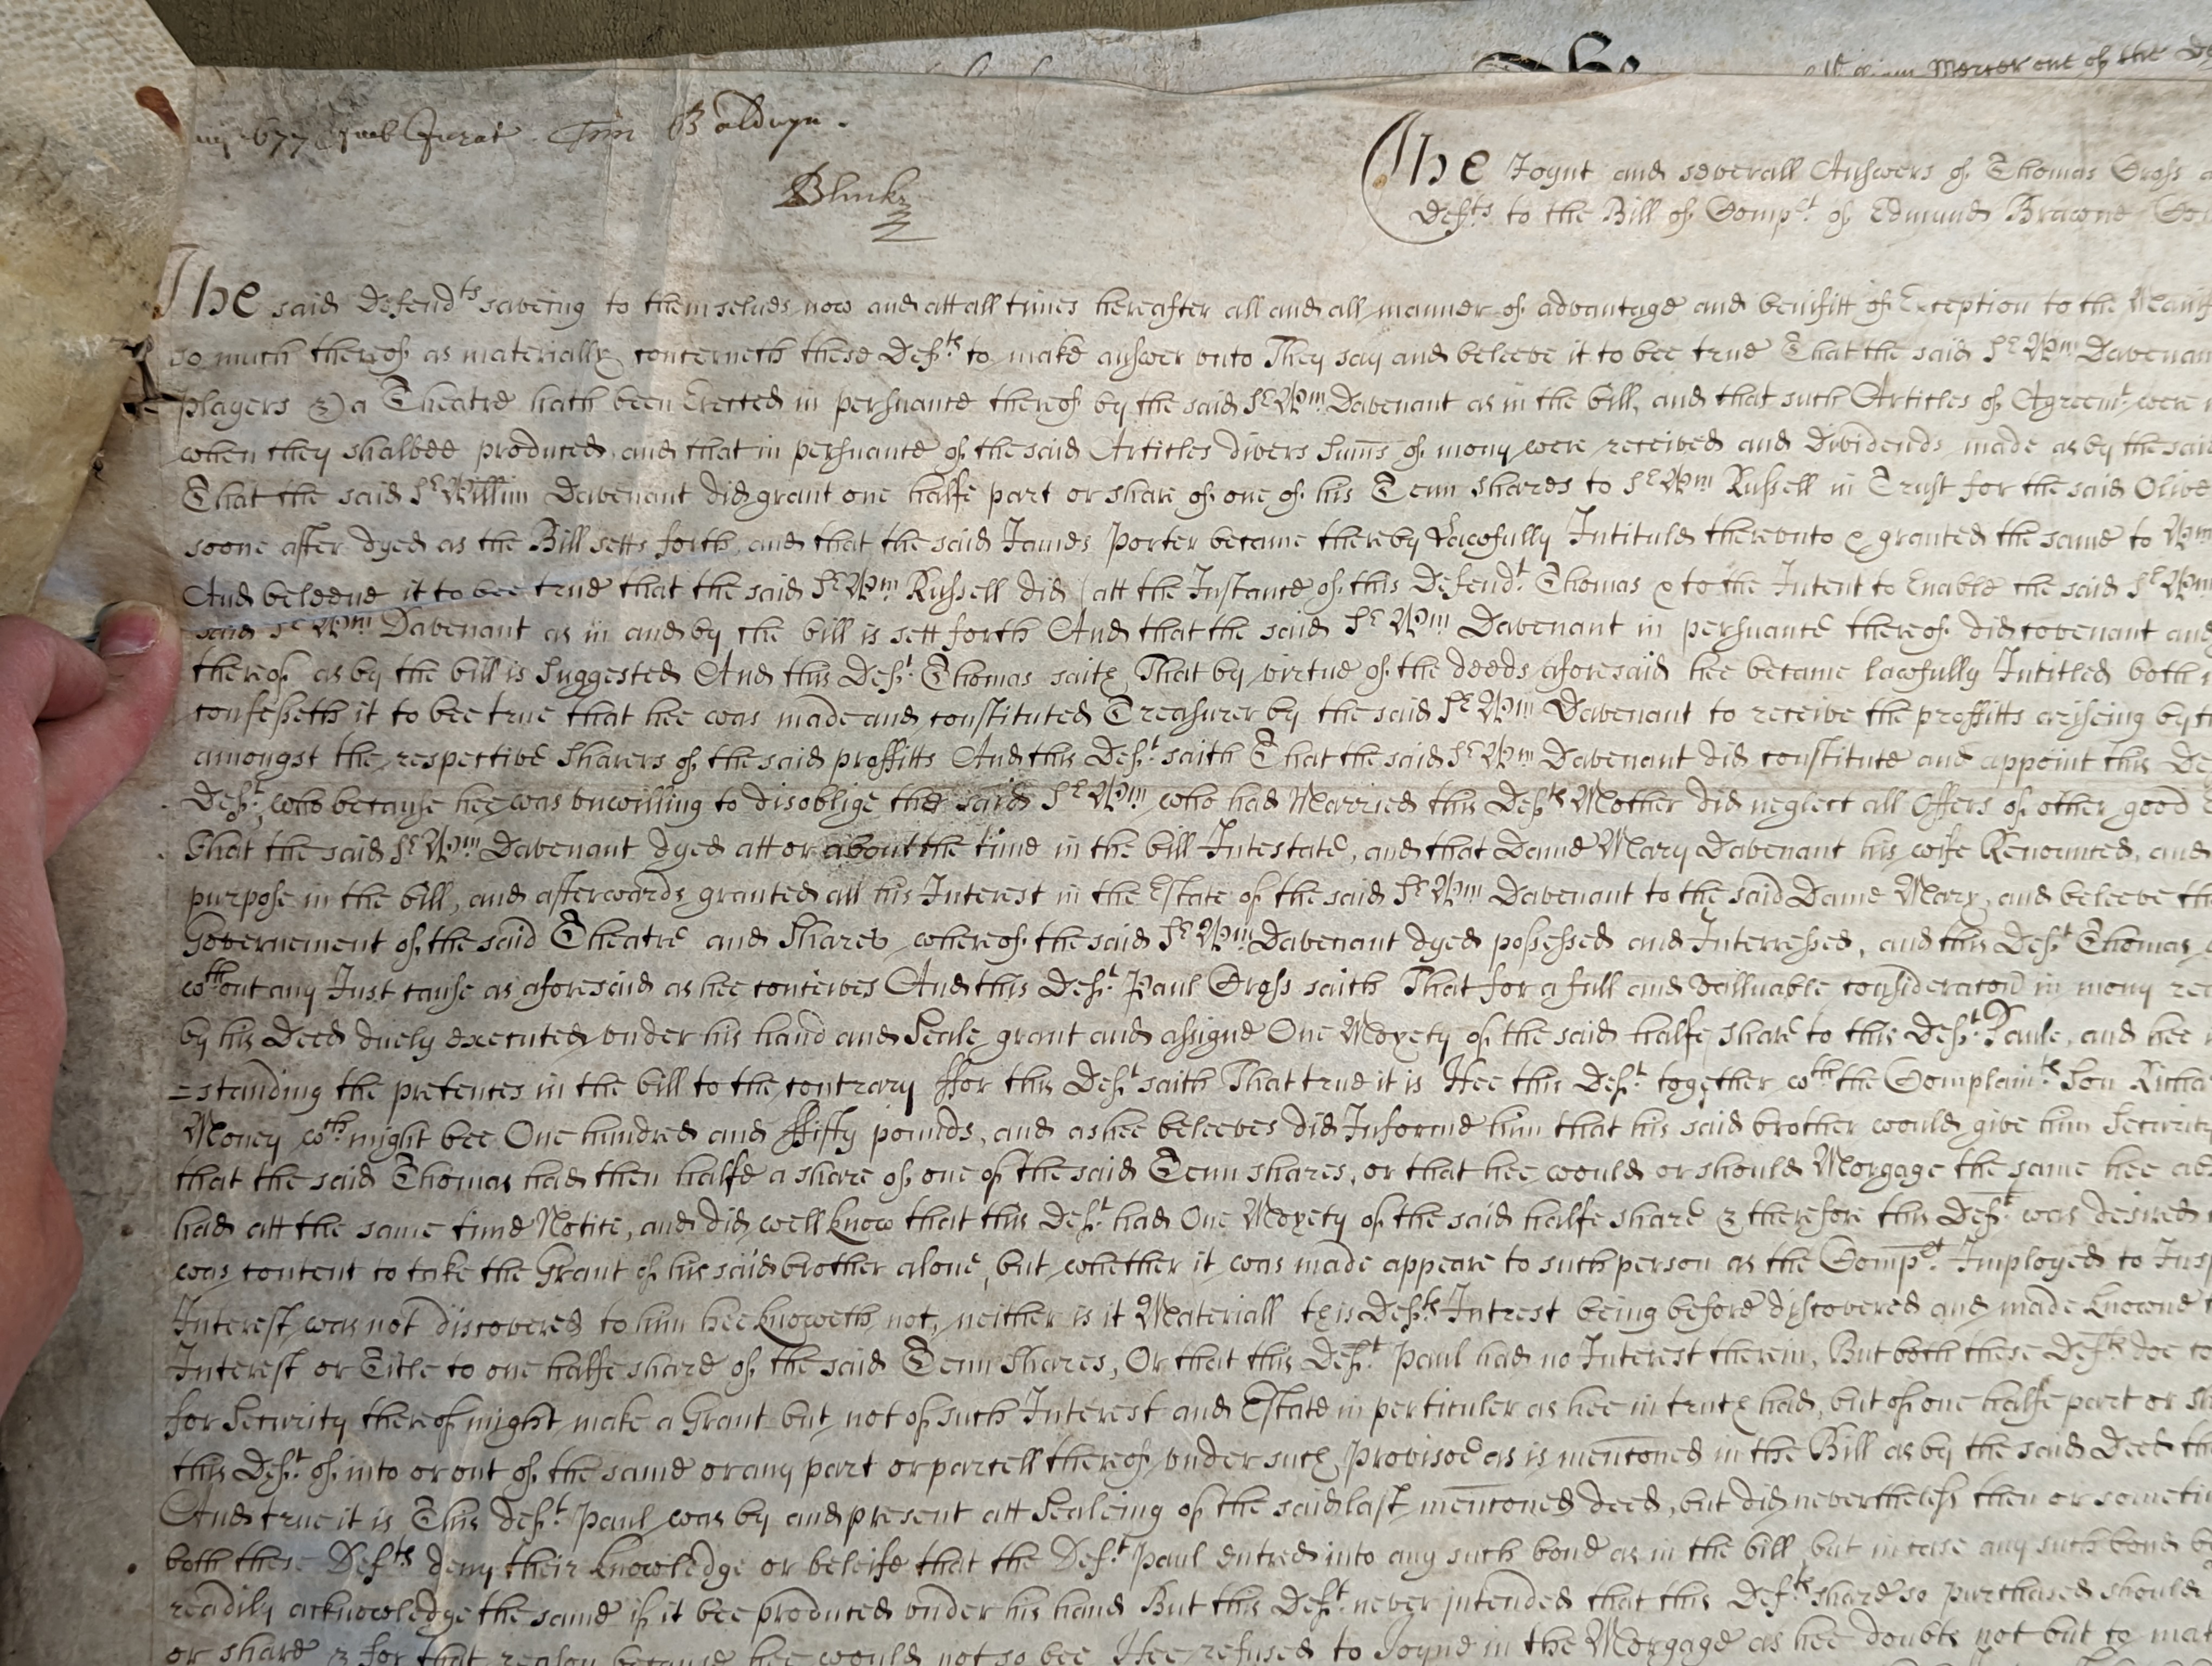 William Mercer one of the
1677 Jurat Baldwyn.
Bluck
The Joynt and severall Answers of Thomas Cross
Defts. to the Bill of Complt. of Edmund
The said Defendts saveing to themselves now and att all times hereafter all and all manner of advantage and benifitt of Exception to the
so much thereof as materially concerneth these Defts to make answer unto They say and beleeve it to bee true That the said Sr Wm Davenant
players & a Theatre hath been Erected in persuance thereof by the said Sr Wm Davenant as in the bill, and that such Articles of Agreemt. were
when they shalbee produced, and that in persuance of the said Articles divers Sums of mony were received and Dividends made as by the said
That the said Sr Willim Davenant did grant one halfe part or share of one of his Tenn shares to Sr Wm Russell in Trust for the said Olive
soone after dyed as the Bill setts forth, and that the said James Porter became thereby Lawfully Intituled thereunto & granted the same to Wm
And beleeve it to bee true that the said Sr Wm Russell did (att the Instance of this Defendt. Thomas & to the Intent to Enable the said Sr Wm
said Sr Wm Davenant as in and by the bill is sett forth And that the said Sr Wm Davenant in persuance thereof did covenant and
thereof as by the bill is Suggested And this Deft. Thomas saith That by virtue of the deeds aforesaid hee became lawfully Intitled both
confesseth it to bee true that hee was made and constituted Treasurer by the said Sr Wm Davenant to receive the proffitts ariseing by
amongst the respective Sharers of the said proffitts And this Deft. saith That the said Sr Wm Davenant did constitute and appoint this
Deft., who because hee was unwilling to disoblige the said Sr Wm who had Married this Defts Mother did neglect all Offers of other good
That the said Sr Wm Davenant dyed att or about the time in the bill Intestate, and that Dame Mary Davenant his wife Renounced, and
purpose in the bill, and afterwards granted all his Interest in the Estate of the said Sr Wm Davenant to the said Dame Mary, and beleeve
Governement of the said Theatre and Shares whereof the said Sr Wm Davenant dyed possessed and Interressed, and this Deft Thomas
wthout any Just cause as aforesaid as hee conceives And this Deft. Paul Cross saith That for a full and valluable consideracon in mony
by his Deed duely executed under his hand and Seale grant and assigne One Moyety of the said halfe share to this Deft. Paule, and hee
=standing the pretences in the bill to the contrary ffor this Deft saith That true it is Hee this Deft. together wth the Complaints Son
Money wch might bee One hundred and ffifty pounds, and as hee beleeves did Informe him that his said brother would give him Security
that the said Thomas had then halfe a share of one of the said Tenn shares, or that hee would or should Morgage the same hee
had att the same time Notice, and did well know that this Deft. had One Moyety of the said halfe share & therefore this Deft. was desired
was content to take the Grant of his said brother alone, but whether it was made appeare to such person as the Complt. Imployed to
Interest was not discovered to him hee knoweth not, neither is it Materiall this Defts Intrest being before discovered and made knowne
Interest or Title to one halfe share of the said Tenn Shares, Or that this Deft Paul had no Interest therein, But both these Defts doe
for Security thereof might make a Grant but not of such Interest and Estate in perticuler as hee in truth had, but of one halfe part or
this Deft. of into or out of the same or any part or parcell thereof under such Provisoe as is mencioned in the Bill as by the said Deed
And true it is This Deft. Paul was by and present att Sealeing of the said last mencioned deed, but did nevertheless then or
both these Defts deny their knowledge or beleife that the Deft. Paul entred into any such bond as in the bill, but in case any such bond
readily acknowledge the same if it bee produced under his hand But this Deft. never intended that this Defts share so purchased should
or share & for that reason because hee would not so bee Hee refused to Joyne in the Morgage as hee doubts not but to